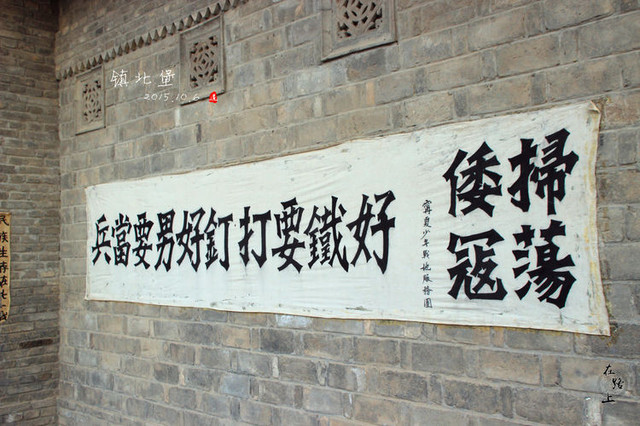 镇北堡
2015.10.6
掃蕩
倭寇
寧夏少年戰地服務團
好鐵要打釘好男要當兵
族生存
在路上